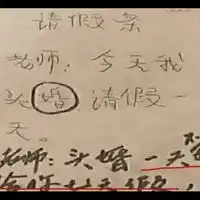 请假条
老师：今天我
头婚，请假一
天。
老师：头婚一天不
给你七天假，